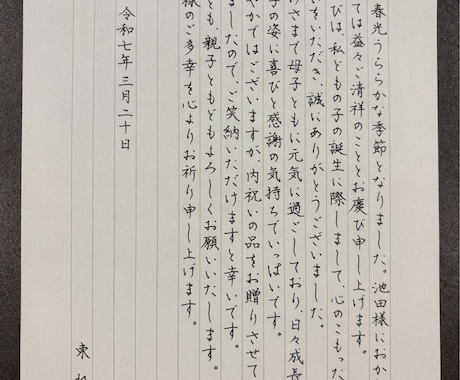 春光うららかな季節となりました。池田様におか
ては益々ご清祥のこととお慶び申し上げます。
びは、私どもの子の誕生に際しまして、心のこもった
いをいただき、誠にありがとうございました。
げさまで母子ともに元気に過ごしており、日々成長
子の姿に喜びと感謝の気持ちでいっぱいです。
やかではございますが、内祝いの品をお贈りさせて
ましたので、ご笑納いただけますと幸いです。
とも、親子ともどもよろしくお願いいたします。
様のご多幸を心よりお祈り申し上げます。
令和七年三月二十日
東